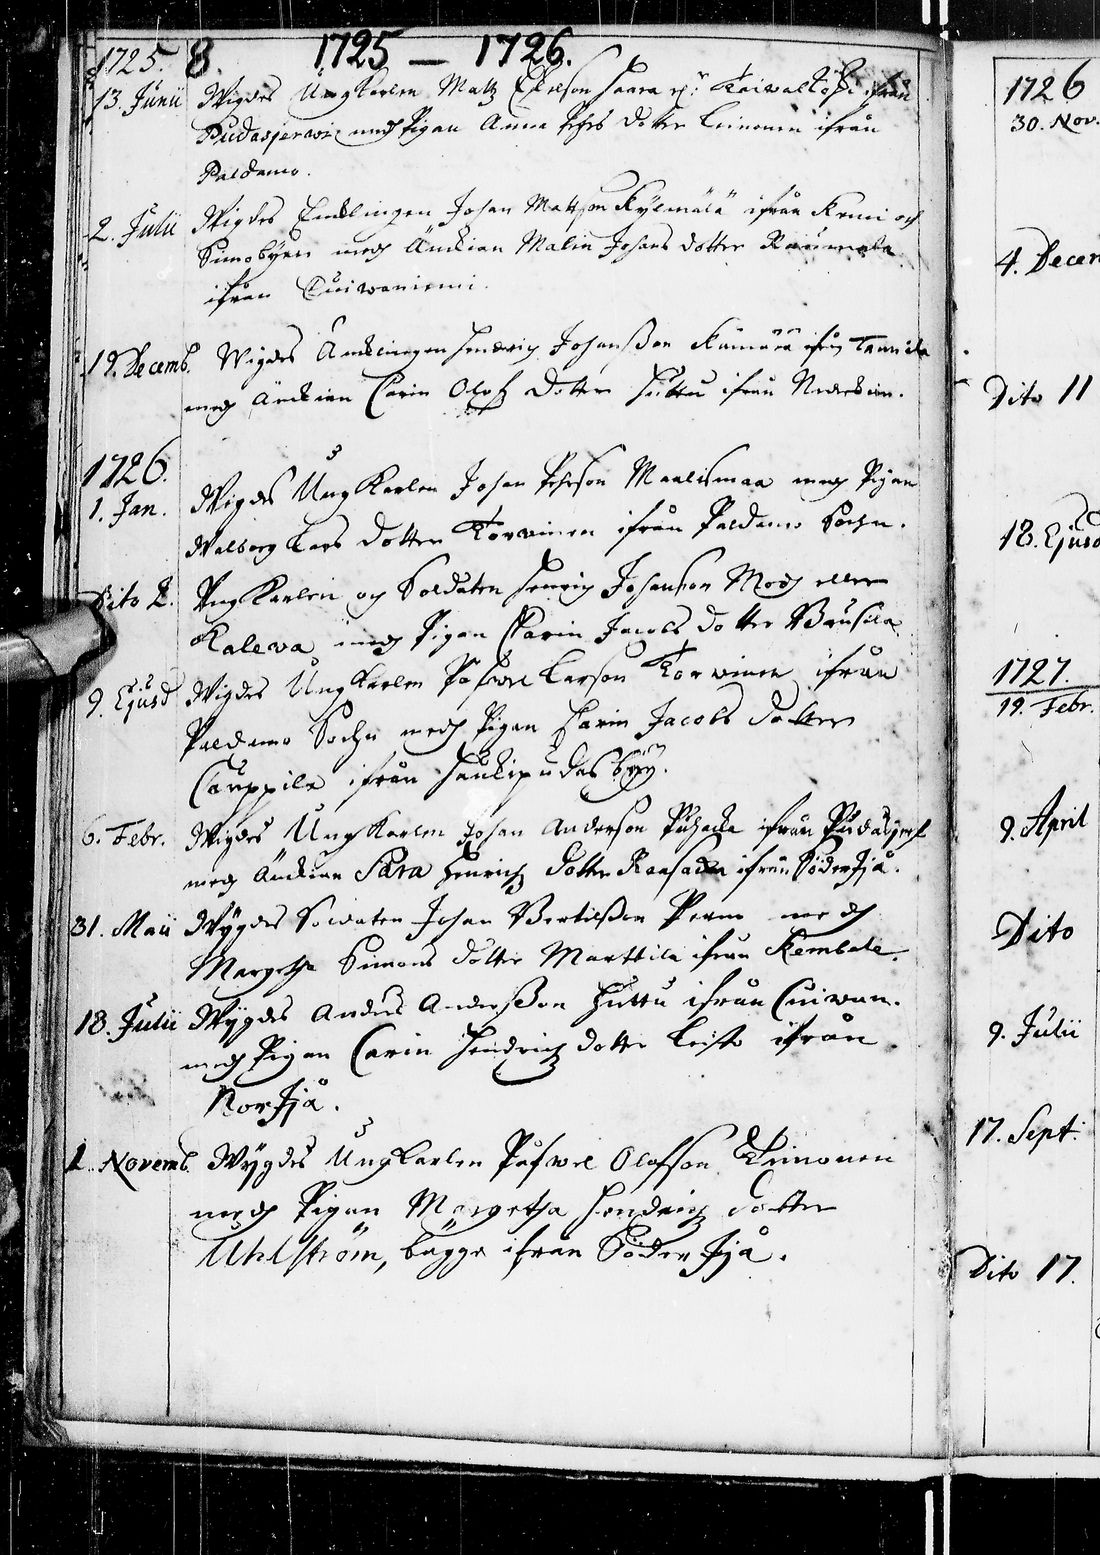 1725. 8. 1725 — 1726.
13. Junii Wigdes UngKarlen Matz Haara ifrån
Pudasjerwi med Pigan Anna Pehrs dotter Leinonen ifrån
Paldamo.
2. Julii Wigdes Encklingen Johan Mattsson Kylmälä ifrån Kemi och
Simobyen med Änckian Malin Johans dotter
ifrån Cuiwaniemi.
19. Decemb. Wigdes Äncklingen Hendrich Johanßon Kämärä ifrån Tannila
med Änckian Carin Olofs dotter Huttu ifrån
1726.
1. Jan. Wigdes UngKarlen Johan Pehrson Maalismaa med Pigan
Walborg Lars dotter Korwinen ifrån Paldamo Sochn.
Dito 2. UngKarlen och Soldaten Henrich Johanson Modh eller
Kalewa med Pigan Karin Jacobs dotter
9. Ejusd Wigdes UngKarlen Påfwel Larson Korwinen ifrån
Paldamo Sochn med Pigan Carin Jacobs dotter
Cauppila ifrån Haukipudas byy.
6. Febr. Wigdes UngKarlen Johan Anderson ifrån
med Änckian Sara Henrichs dotter ifrån Söder Ijå.
31. Maii Wygdes Soldaten Johan Bertilßon med
Margetha Simons dotter Marttila ifrån Kembele.
18. Julii Wygdes Anders Anderßon Huttu ifrån Cuiwan.
med Pigan Carin Hendrichs dotter Leisto ifrån
Nor Ijå.
1. Novemb. Wygdes UngKarlen Påfwel Olofson Leinonen
med Pigan Margetha Hendrichs dotter
Uhlström, bägge ifrån Söder Ijå.
1726
30. Nov.
4. Decem
Dito 11
18. Ejusd
1727.
19. Febr.
9. April
Dito
9. Julii
17. Sept.
Dito 17.